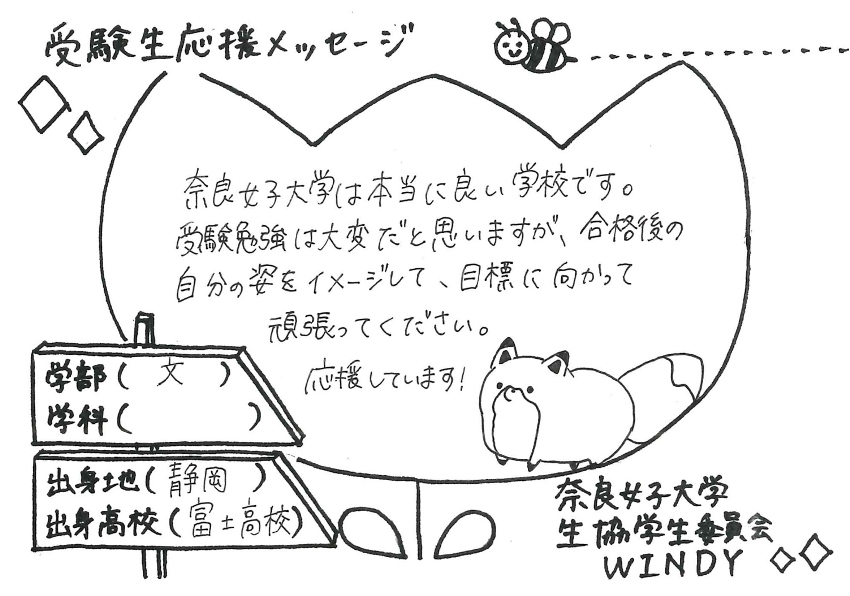 受験生応援メッセージ
奈良女子大学は本当に良い学校です。
受験勉強は大変だと思いますが、合格後の
自分の姿をイメージして、目標に向かって
頑張ってください。
応援しています!
学部( 文 )
学科( )
出身地(静岡 )
出身高校(富士高校)
奈良女子大学
生協学生委員会
WINDY